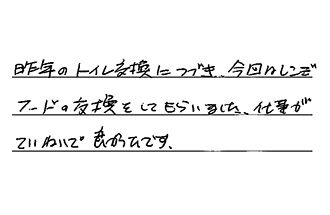 昨年のトイレ交換につづき、今回はレンジ
フードの交換をしてもらいました、仕事が
ていねいで良かったです、